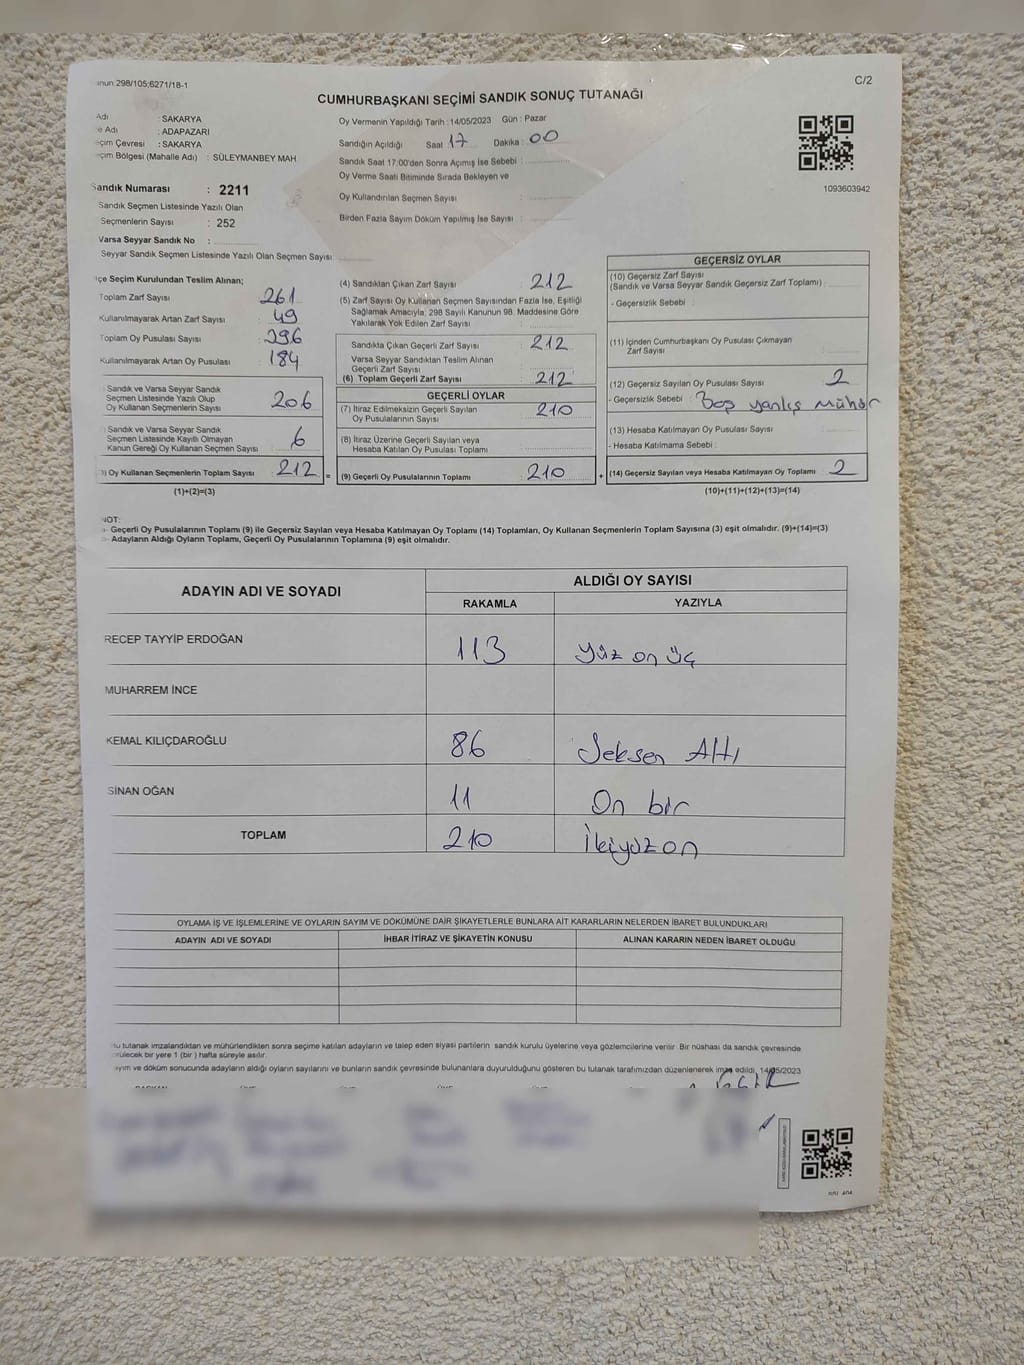 298/105;6271/18-1
C/2
CUMHURBAŞKANI SEÇİMİ SANDIK SONUÇ TUTANAĞI
: SAKARYA
Adı : ADAPAZARI
Çevresi : SAKARYA
Bölgesi (Mahalle Adı) : SÜLEYMANBEY MAH
Sandık Numarası : 2211
Sandık Seçmen Listesinde Yazılı Olan
Seçmenlerin Sayısı : 252
Varsa Seyyar Sandık No :
Seyyar Sandık Seçmen Listesinde Yazılı Olan Seçmen Sayısı:
Oy Vermenin Yapıldığı Tarih : 14/05/2023 Gün : Pazar
Sandığın Açıldığı Saat 17 Dakika : 00
Sandık Saat 17:00'den Sonra Açımış İse Sebebi :
Oy Verme Saati Bitiminde Sırada Bekleyen ve
Oy Kullandırılan Seçmen Sayısı :
Birden Fazla Sayım Döküm Yapılmış İse Sayısı :
1093603942
Seçim Kurulundan Teslim Alınan;
Toplam Zarf Sayısı : 261
Kullanılmayarak Artan Zarf Sayısı : 49
Toplam Oy Pusulası Sayısı : 396
Kullanılmayarak Artan Oy Pusulası : 184
Sandık ve Varsa Seyyar Sandık
Seçmen Listesinde Yazılı Olup
Oy Kullanan Seçmenlerin Sayısı : 206
Sandık ve Varsa Seyyar Sandık
Seçmen Listesinde Kayıtlı Olmayan
Kanun Gereği Oy Kullanan Seçmen Sayısı : 6
) Oy Kullanan Seçmenlerin Toplam Sayısı : 212 =
(1)+(2)=(3)
(4) Sandıktan Çıkan Zarf Sayısı : 212
(5) Zarf Sayısı Oy Kullanan Seçmen Sayısından Fazla İse, Eşitliği
Sağlamak Amacıyla, 298 Sayılı Kanunun 98. Maddesine Göre
Yakılarak Yok Edilen Zarf Sayısı :
Sandıkta Çıkan Geçerli Zarf Sayısı : 212
Varsa Seyyar Sandıktan Teslim Alınan
Geçerli Zarf Sayısı :
(6) Toplam Geçerli Zarf Sayısı : 212
GEÇERLİ OYLAR
(7) İtiraz Edilmeksizin Geçerli Sayılan
Oy Pusulalarının Sayısı : 210
(8) İtiraz Üzerine Geçerli Sayılan veya
Hesaba Katılan Oy Pusulası Toplamı :
(9) Geçerli Oy Pusulalarının Toplamı : 210 +
GEÇERSİZ OYLAR
(10) Geçersiz Zarf Sayısı
(Sandık ve Varsa Seyyar Sandık Geçersiz Zarf Toplamı) :
- Geçersizlik Sebebi :
(11) İçinden Cumhurbaşkanı Oy Pusulası Çıkmayan
Zarf Sayısı :
(12) Geçersiz Sayılan Oy Pusulası Sayısı : 2
- Geçersizlik Sebebi : Boş yanlış mühür
(13) Hesaba Katılmayan Oy Pusulası Sayısı :
- Hesaba Katılmama Sebebi :
(14) Geçersiz Sayılan veya Hesaba Katılmayan Oy Toplamı : 2
(10)+(11)+(12)+(13)=(14)
NOT:
- Geçerli Oy Pusulalarının Toplamı (9) ile Geçersiz Sayılan veya Hesaba Katılmayan Oy Toplamı (14) Toplamları, Oy Kullanan Seçmenlerin Toplam Sayısına (3) eşit olmalıdır. (9)+(14)=(3)
- Adayların Aldığı Oyların Toplamı, Geçerli Oy Pusulalarının Toplamına (9) eşit olmalıdır.
ADAYIN ADI VE SOYADI
ALDIĞI OY SAYISI
RAKAMLA YAZIYLA
RECEP TAYYİP ERDOĞAN 113 yüz on üç
MUHARREM İNCE
KEMAL KILIÇDAROĞLU 86 Seksen Altı
SİNAN OĞAN 11 On bir
TOPLAM 210 İkiyüzon
OYLAMA İŞ VE İŞLEMLERİNE VE OYLARIN SAYIM VE DÖKÜMÜNE DAİR ŞİKAYETLERLE BUNLARA AİT KARARLARIN NELERDEN İBARET BULUNDUKLARI
ADAYIN ADI VE SOYADI İHBAR İTİRAZ VE ŞİKAYETİN KONUSU ALINAN KARARIN NEDEN İBARET OLDUĞU
tutanak imzalandıktan ve mühürlendikten sonra seçime katılan adayların ve talep eden siyasi partilerin sandık kurulu üyelerine veya gözlemcilerine verilir. Bir nüshası da sandık çevresinde
bir yere 1 (bir) hafta süreyle asılır.
ve döküm sonucunda adayların aldığı oyların sayılarını ve bunların sandık çevresinde bulunanlara duyurulduğunu gösteren bu tutanak tarafımızdan düzenlenerek imza edildi. 14/05/2023